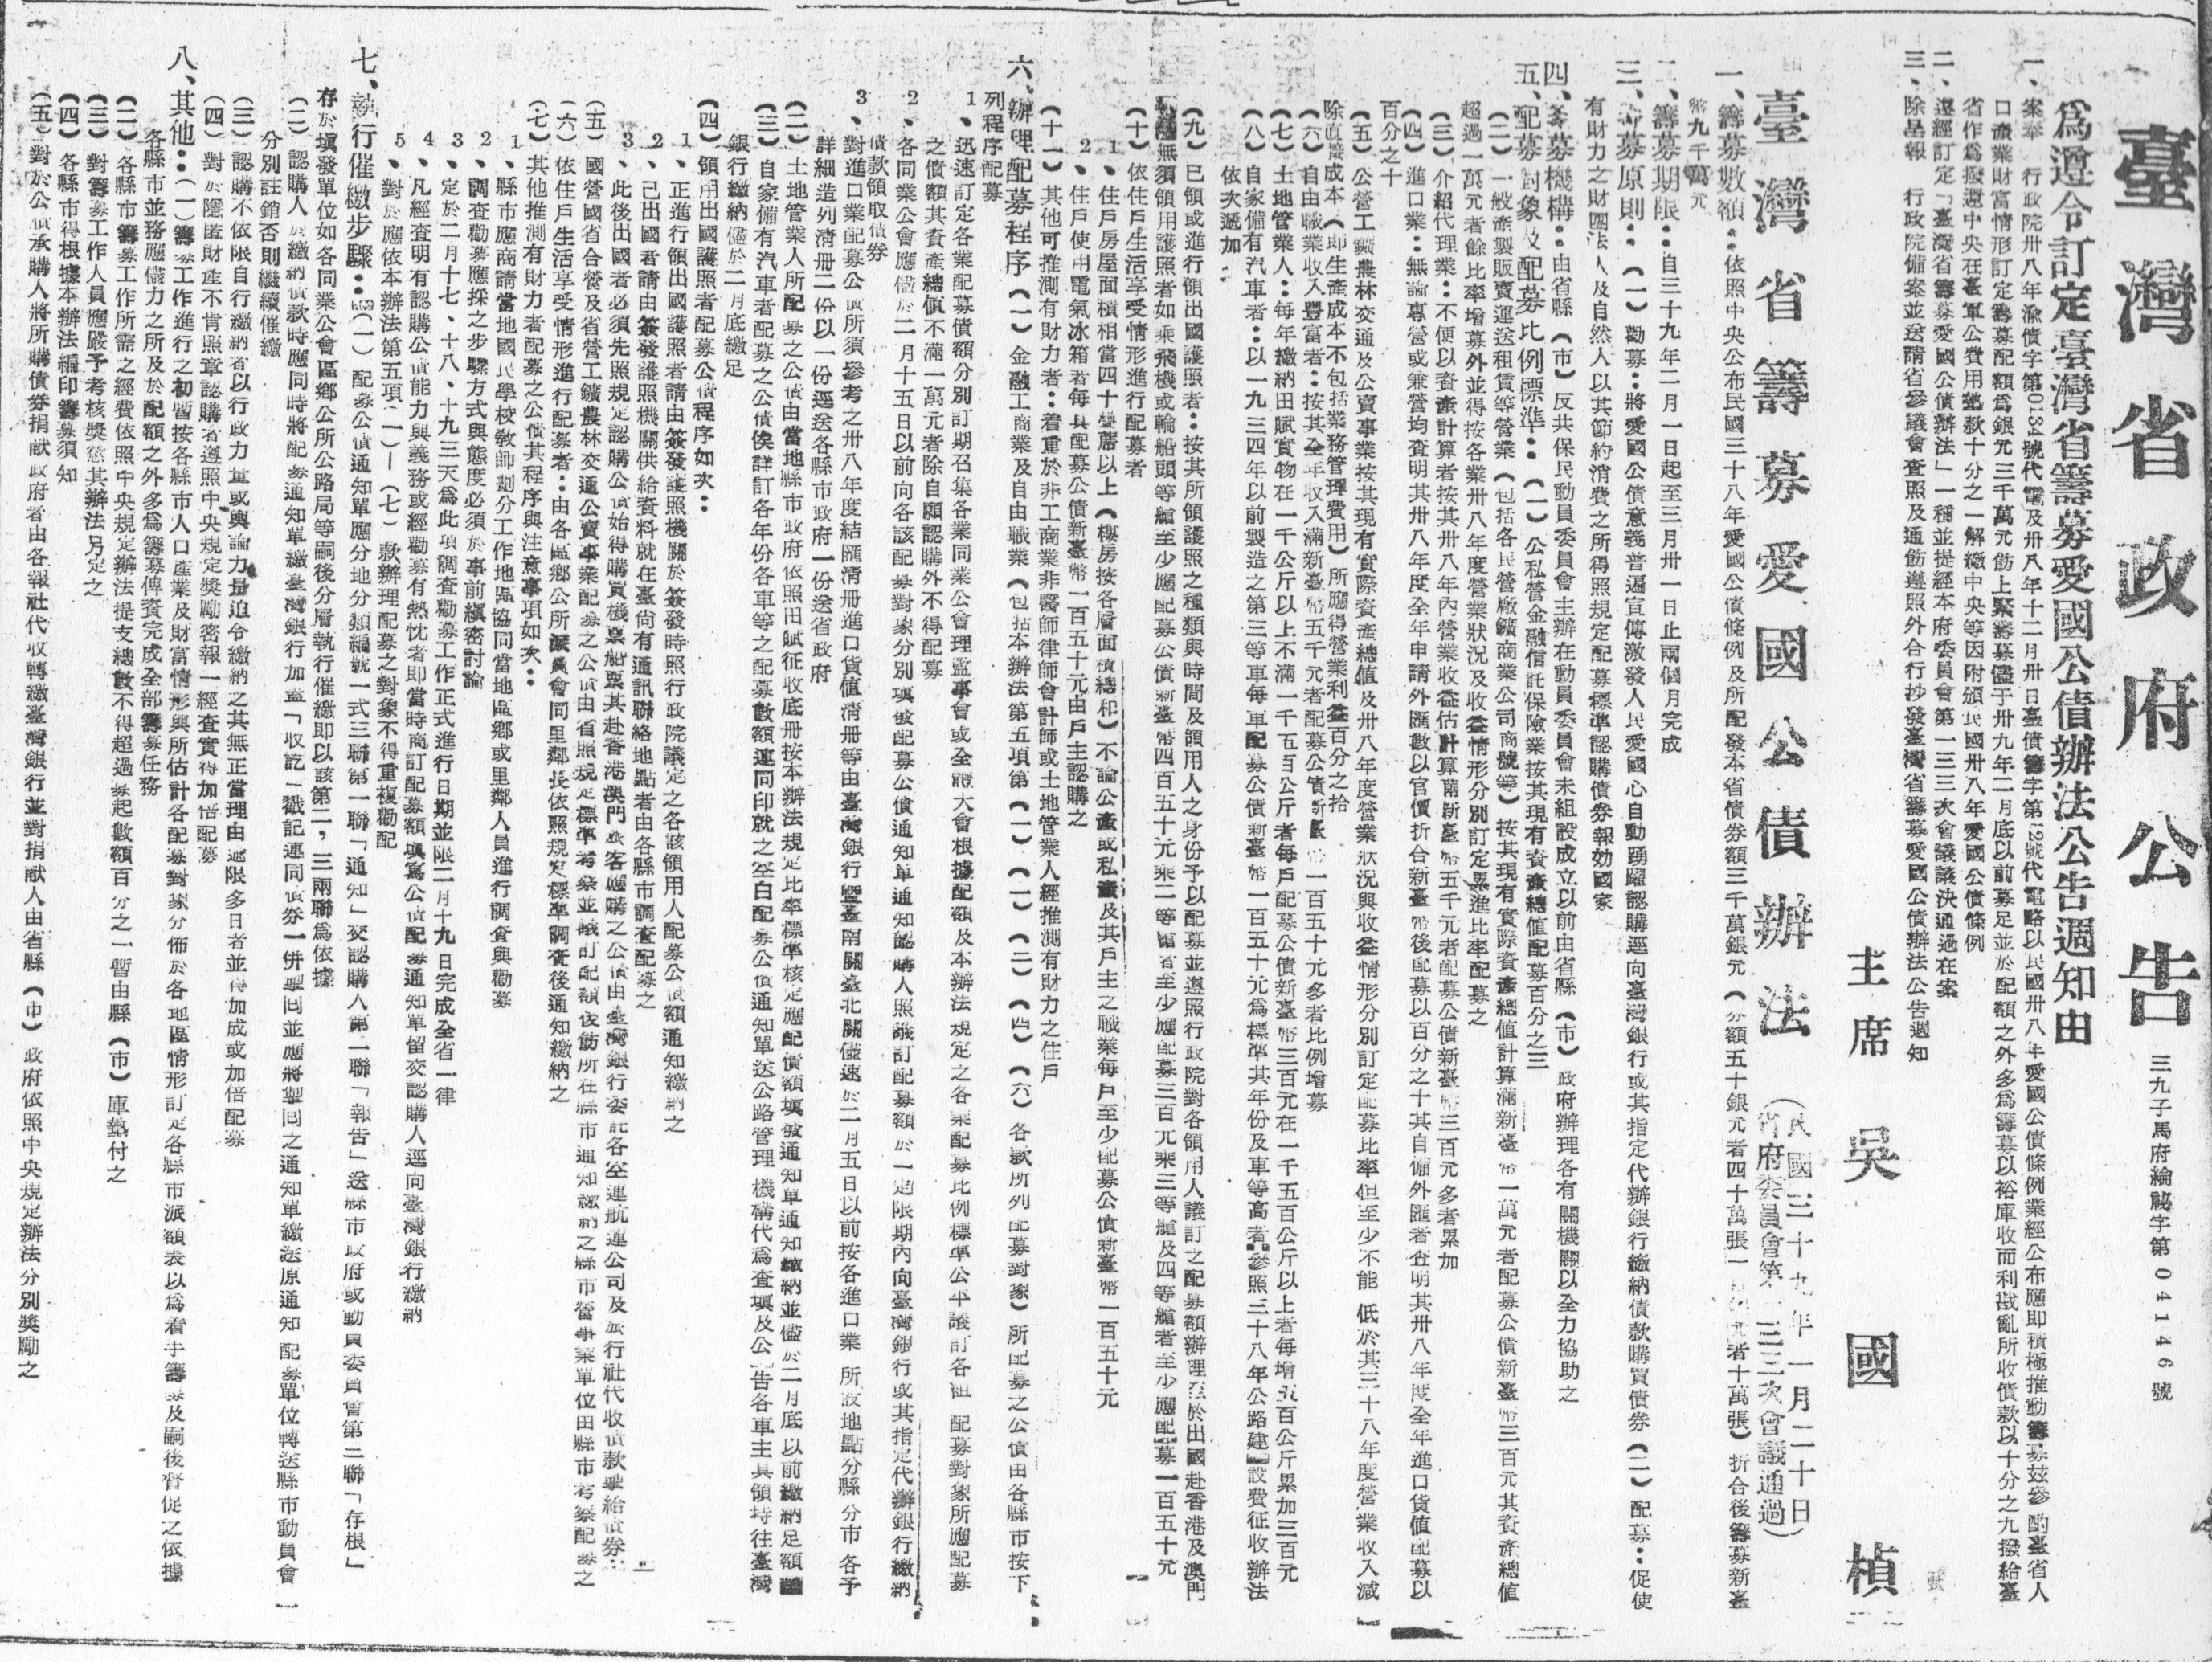 臺灣省政府公告
三九子馬府綸祕字第04146號
爲遵令訂定臺灣省籌募愛國公債辦法公告週知由
一、案奉 行政院卅八年渝債字第0134號代電及卅八年十二月卅日臺債籌字第12號代電略以民國卅八年愛國公債條例業經公布應即積極推動籌募茲參酌臺省人
口產業財富情形訂定籌募配額爲銀元三千萬元飭上緊籌募儘于卅九年二月底以前募足並於配額之外多爲籌募以裕庫收而利戡亂所收債款以十分之九撥給臺
省作爲撥還中央在臺軍公費用墊款十分之一解繳中央等因附頒民國卅八年愛國公債條例
二、遵經訂定「臺灣省籌募愛國公債辦法」一種並提經本府委員會第一三三次會議議決通過在案
三、除呈報 行政院備案並送請省參議會查照及通飭遵照外合行抄發臺灣省籌募愛國公債辦法公告週知
主席 吳國楨
臺灣省籌募愛國公債辦法
(民國三十九年一月二十日)
(省府委員會第一三三次會議通過)
一、籌募數額:依照中央公布民國三十八年愛國公債條例及所配發本省債券額三千萬銀元(券額五十銀元者四十萬張一百銀元者十萬張)折合後籌募新臺
幣九千萬元
二、籌募期限:自三十九年二月一日起至三月卅一日止兩個月完成
三、籌募原則:(一)勸募:將愛國公債意義普遍宣傳激發人民愛國心自動踴躍認購逕向臺灣銀行或其指定代辦銀行繳納債款購買債券(二)配募:促使
有財力之財團法人及自然人以其節約消費之所得照規定配募標準認購債券報効國家
四、籌募機構:由省縣(市)反共保民動員委員會主辦在動員委員會未組設成立以前由省縣(市)政府辦理各有關機關以全力協助之
五、配募對象及配募比例標準:(一)公私營金融信託保險業按其現有資產總值配募百分之三
(二)一般產製販賣運送租賃等營業(包括各民營廠鑛商業公司商號等)按其現有實際資產總值計算滿新臺幣一萬元者配募公債新臺幣三百元其資產總值
超過一萬元者餘比率增募外並得按各業卅八年度營業狀況及收益情形分別訂定累進比率配募之
(三)介紹代理業:不便以資產計算者按其卅八年內營業收益估計算滿新臺幣五千元者配募公債新臺幣三百元多者累加
(四)進口業:無論專營或兼營均查明其卅八年度全年申請外匯數以官價折合新臺幣後配募以百分之十其自備外匯者查明其卅八年度全年進口貨值配募以
百分之十
(五)公營工鑛農林交通及公賣事業按其現有實際資產總值及卅八年度營業狀況與收益情形分別訂定配募比率但至少不能低於其三十八年度營業收入減
除直接成本(即生產成本不包括業務管理費用)所應得營業利益百分之拾
(六)自由職業收入豐富者:按其全年收入滿新臺幣五千元者配募公債新臺幣一百五十元多者比例增募
(七)土地管業人:每年繳納田賦實物在一千公斤以上不滿一千五百公斤者每戶配募公債新臺幣三百元在一千五百公斤以上者每增五百公斤累加三百元
(八)自家備有汽車者:以一九三四年以前製造之第三等車每車配募公債新臺幣一百五十元爲標準其年份及車等高者參照三十八年公路建設費征收辦法
依次遞加
(九)已領或進行領出國護照者:按其所領護照之種類與時間及領用人之身份予以配募並遵照行政院對各領用人議訂之配募額辦理至於出國赴香港及澳門
無須領用護照者如乘飛機或輪船頭等艙至少應配募公債新臺幣四百五十元乘二等艙者至少應配募三百元乘三等艙及四等艙者至少應配募一百五十元
(十)依住戶生活享受情形進行配募者
1、住戶房屋面積相當四十疊蓆以上(樓房按各層面積總和)不論公產或私產及其戶主之職業每戶至少配募公債新臺幣一百五十元
2、住戶使用電氣冰箱者每具配募公債新臺幣一百五十元由戶主認購之
(十一)其他可推測有財力者:着重於非工商業非醫師律師會計師或土地管業人經推測有財力之住戶
六、辦理配募程序(一)金融工商業及自由職業(包括本辦法第五項第(一)(二)(三)(四)(六)各款所列配募對象)所配募之公債由各縣市按下
列程序配募
1、迅速訂定各業配募債額分別訂期召集各業同業公會理監事會或全體大會根據配額及本辦法規定之各業配募比例標準公平議訂各組配募對象所應配募
之債額其資產總值不滿一萬元者除自願認購外不得配募
2、各同業公會應儘於二月十五日以前向各該配募對象分別填發配募公債通知單通知認購人照議訂配募額於一定限期內向臺灣銀行或其指定代辦銀行繳納
債款領取債券
3、對進口業配募公債所須參考之卅八年度結匯清册進口貨值清册等由臺灣銀行暨臺南關臺北關儘速於二月五日以前按各進口業所設地點分縣分市各予
詳細造列清册二份以一份逕送各縣市政府一份送省政府
(二)土地管業人所配募之公債由當地縣市政府依照田賦征收底册按本辦法規定比率標準核定應配債額填發通知單通知繳納並儘於二月底以前繳納足額
(三)自家備有汽車者配募之公債俟詳訂各年份各車等之配募數額連同印就之空白配募公債通知單送公路管理機構代爲查填及公告各車主具領持往臺灣
銀行繳納儘於二月底繳足
(四)領用出國護照者配募公債程序如次:
1、正進行領出國護照者請由簽發護照機關於簽發時照行政院議定之各該領用人配募公債額通知繳納之
2、已出國者請由簽發護照機關供給資料就在臺尚有通訊聯絡地點者由各縣市調查配募之
3、此後出國者必須先照規定認購公債始得購買機票船票其赴香港澳門旅客應購之公債由臺灣銀行委託各空運航運公司及旅行社代收債款擊給債券
(五)國營國省合營及省營工鑛農林交通公賣事業配募之公債由省照規定標準考察並議訂配額後飭所在縣市通知繳納之縣市營事業單位由縣市考察配募之
(六)依住戶生活享受情形進行配募者:由各區鄉公所派員會同里鄰長依照規定標準調查後通知繳納之
(七)其他推測有財力者配募之公債其程序與注意事項如次:
1、縣市應商請當地國民學校教師劃分工作地區協同當地區鄉或里鄰人員進行調查與勸募
2、調查勸募應採之步驟方式與態度必須於事前縝密討論
3、定於二月十七、十八、十九三天爲此項調查勸募工作正式進行日期並限二月十九日完成全省一律
4、凡經查明有認購公債能力與義務或經勸募有熱忱者即當時商訂配募額填寫公債配募通知單留交認購人逕向臺灣銀行繳納
5、對於應依本辦法第五項(一)—(七)款辦理配募之對象不得重複勸配
七、執行催繳步驟:(一)配募公債通知單應分地分類編號一式三聯第一聯「通知」交認購人第二聯「報告」送縣市政府或動員委員會第三聯「存根」
存於塡發單位如各同業公會區鄉公所公路局等嗣後分層執行催繳即以該第二,三兩聯爲依據
(二)認購人於繳納債款時應同時將配募通知單繳臺灣銀行加蓋「收訖」戳記連同債券一併掣回並應將掣回之通知單繳送原通知配募單位轉送縣市動員會
分別註銷否則繼續催繳
(三)認購不依限自行繳納者以行政力量或輿論力量迫令繳納之其無正當理由逾限多日者並得加成或加倍配募
(四)對於隱匿財產不肯照章認購者遵照中央規定獎勵密報一經查實得加倍配募
八、其他:(一)籌募工作進行之初暫按各縣市人口產業及財富情形與所估計各配募對象分佈於各地區情形訂定各縣市派額表以爲着手籌募及嗣後督促之依據
各縣市並務應儘力之所及於配額之外多爲籌募俾資完成全部籌募任務
(二)各縣市籌募工作所需之經費依照中央規定辦法提支總數不得超過募起數額百分之一暫由縣(市)庫墊付之
(三)對籌募工作人員應嚴予考核獎懲其辦法另定之
(四)各縣市得根據本辦法編印籌募須知
(五)對於公債承購人將所購債券捐献政府者由各報社代收轉繳臺灣銀行並對捐献人由省縣(市)政府依照中央規定辦法分別獎勵之